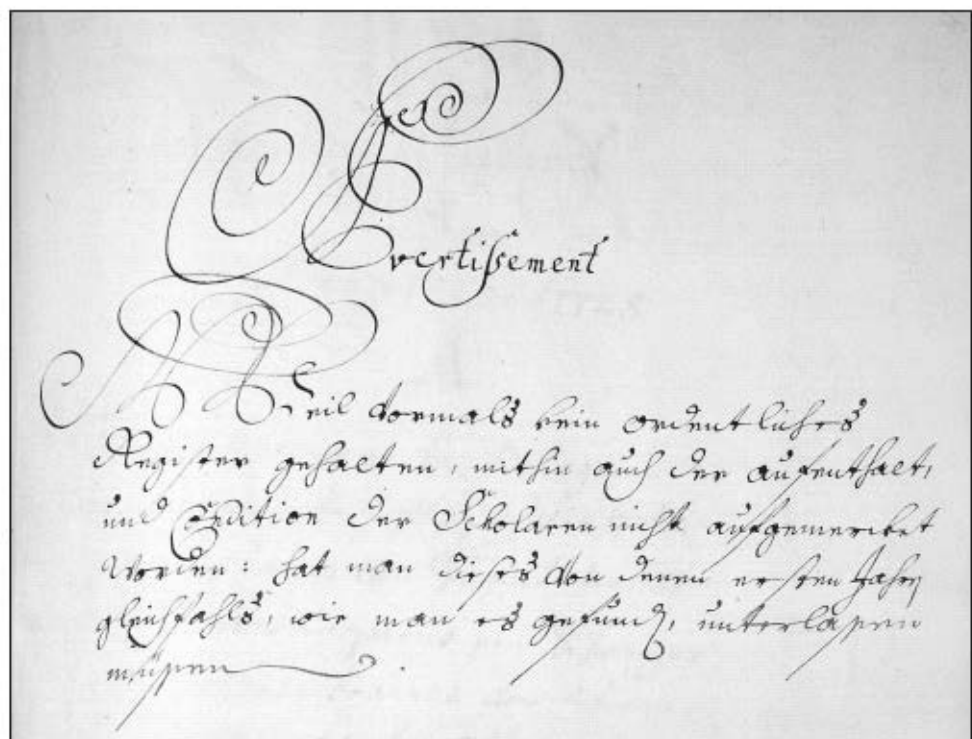 Avertissement
Weil vormals kein ordentliches
Register gehalten, mithin auch der aufenthalt,
und Condition der Scholaren nicht aufgemercket
worden: hat man dieses von denen ersten Jahren
gleichfahls, wie man es gefunden, unterlaßen
müßen